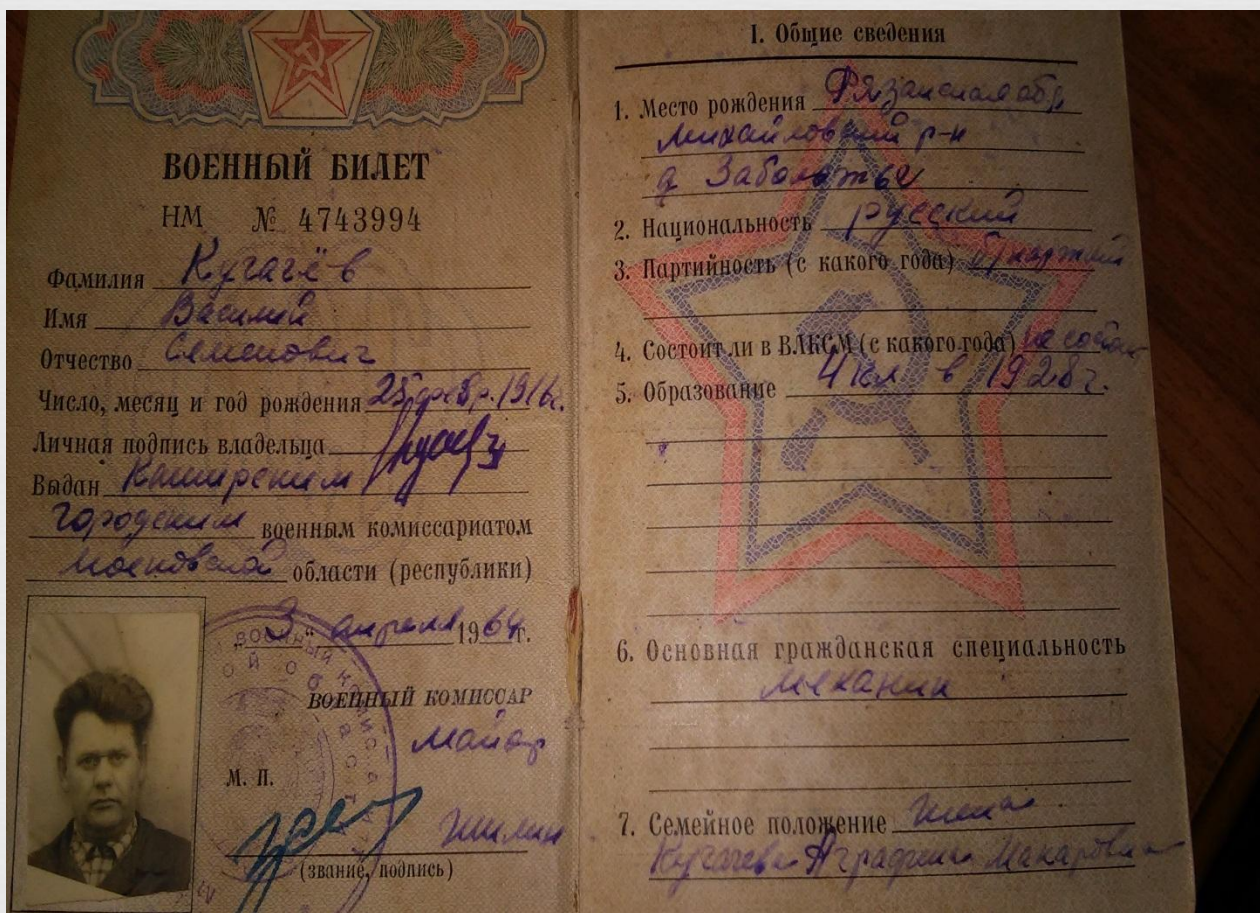 ВОЕННЫЙ БИЛЕТ
НМ № 4743994
Фамилия Кугачёв
Имя Василий
Отчество Семенович
Число, месяц и год рождения 25 февр. 1916г.
Личная подпись владельца
Выдан Каширским
городским военным комиссариатом
Московской области (республики)
3 " апреля 1964г.
ВОЕННЫЙ КОМИССАР
майор
М. П.
(звание, подпись)
I. Общие сведения
1. Место рождения Рязанская обл
Михайловский р-н
д Заболотье
2. Национальность русский
3. Партийность (с какого года) б/партий
4. Состоит ли в ВЛКСМ (с какого года) не состоит
5. Образование 4 кл в 1928г.
6. Основная гражданская специальность
механик
7. Семейное положение жена
Кугачева Аграфена Макаровна